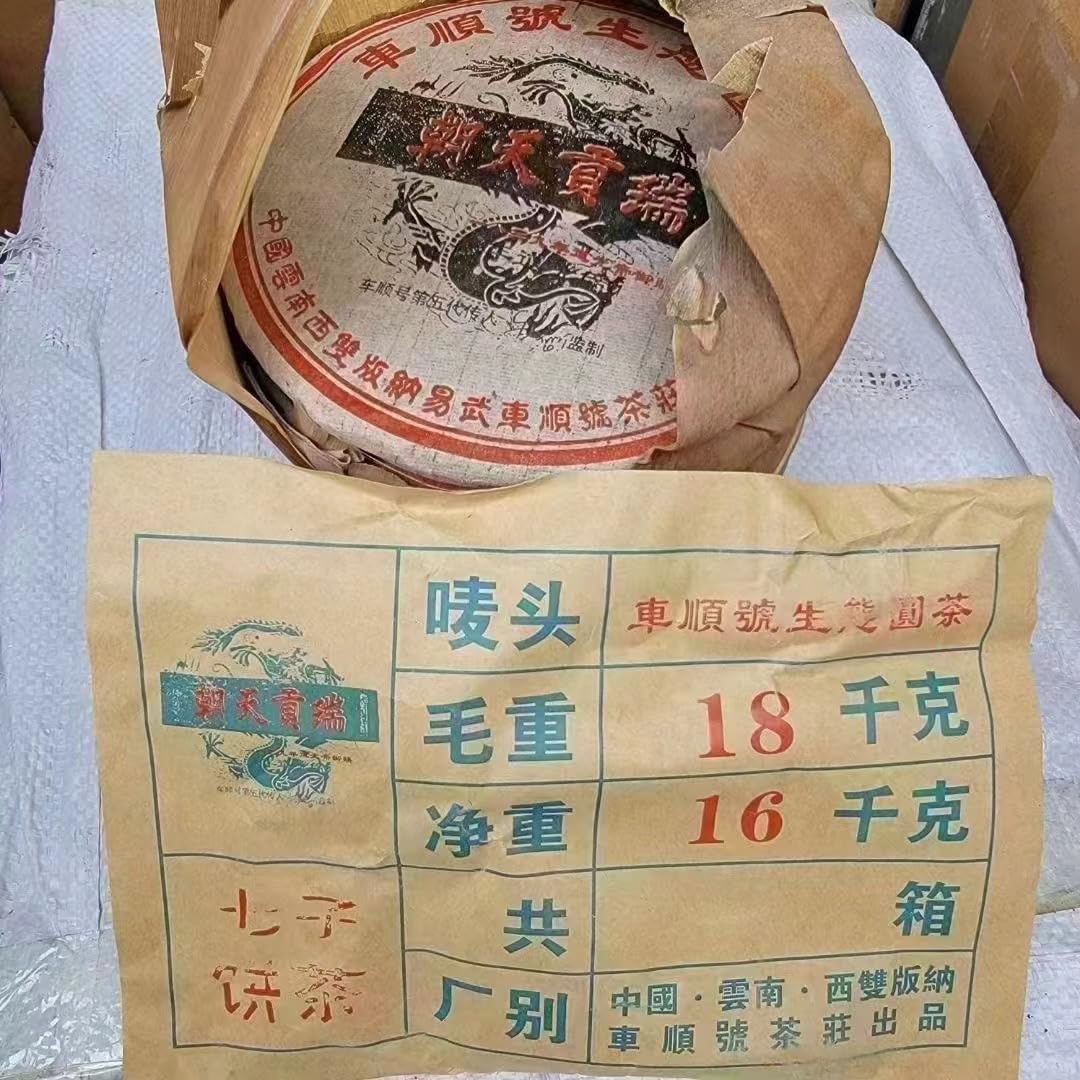 車順號生態
瑞貢天朝
车顺号第伍代传人
监制
中國雲南西雙版納易武車順號茶莊
唛头
車順號生態圓茶
毛重
18 千克
瑞貢天朝
净重
16 千克
共
箱
七子
饼茶
厂别
中國·雲南·西雙版納
車順號茶莊出品